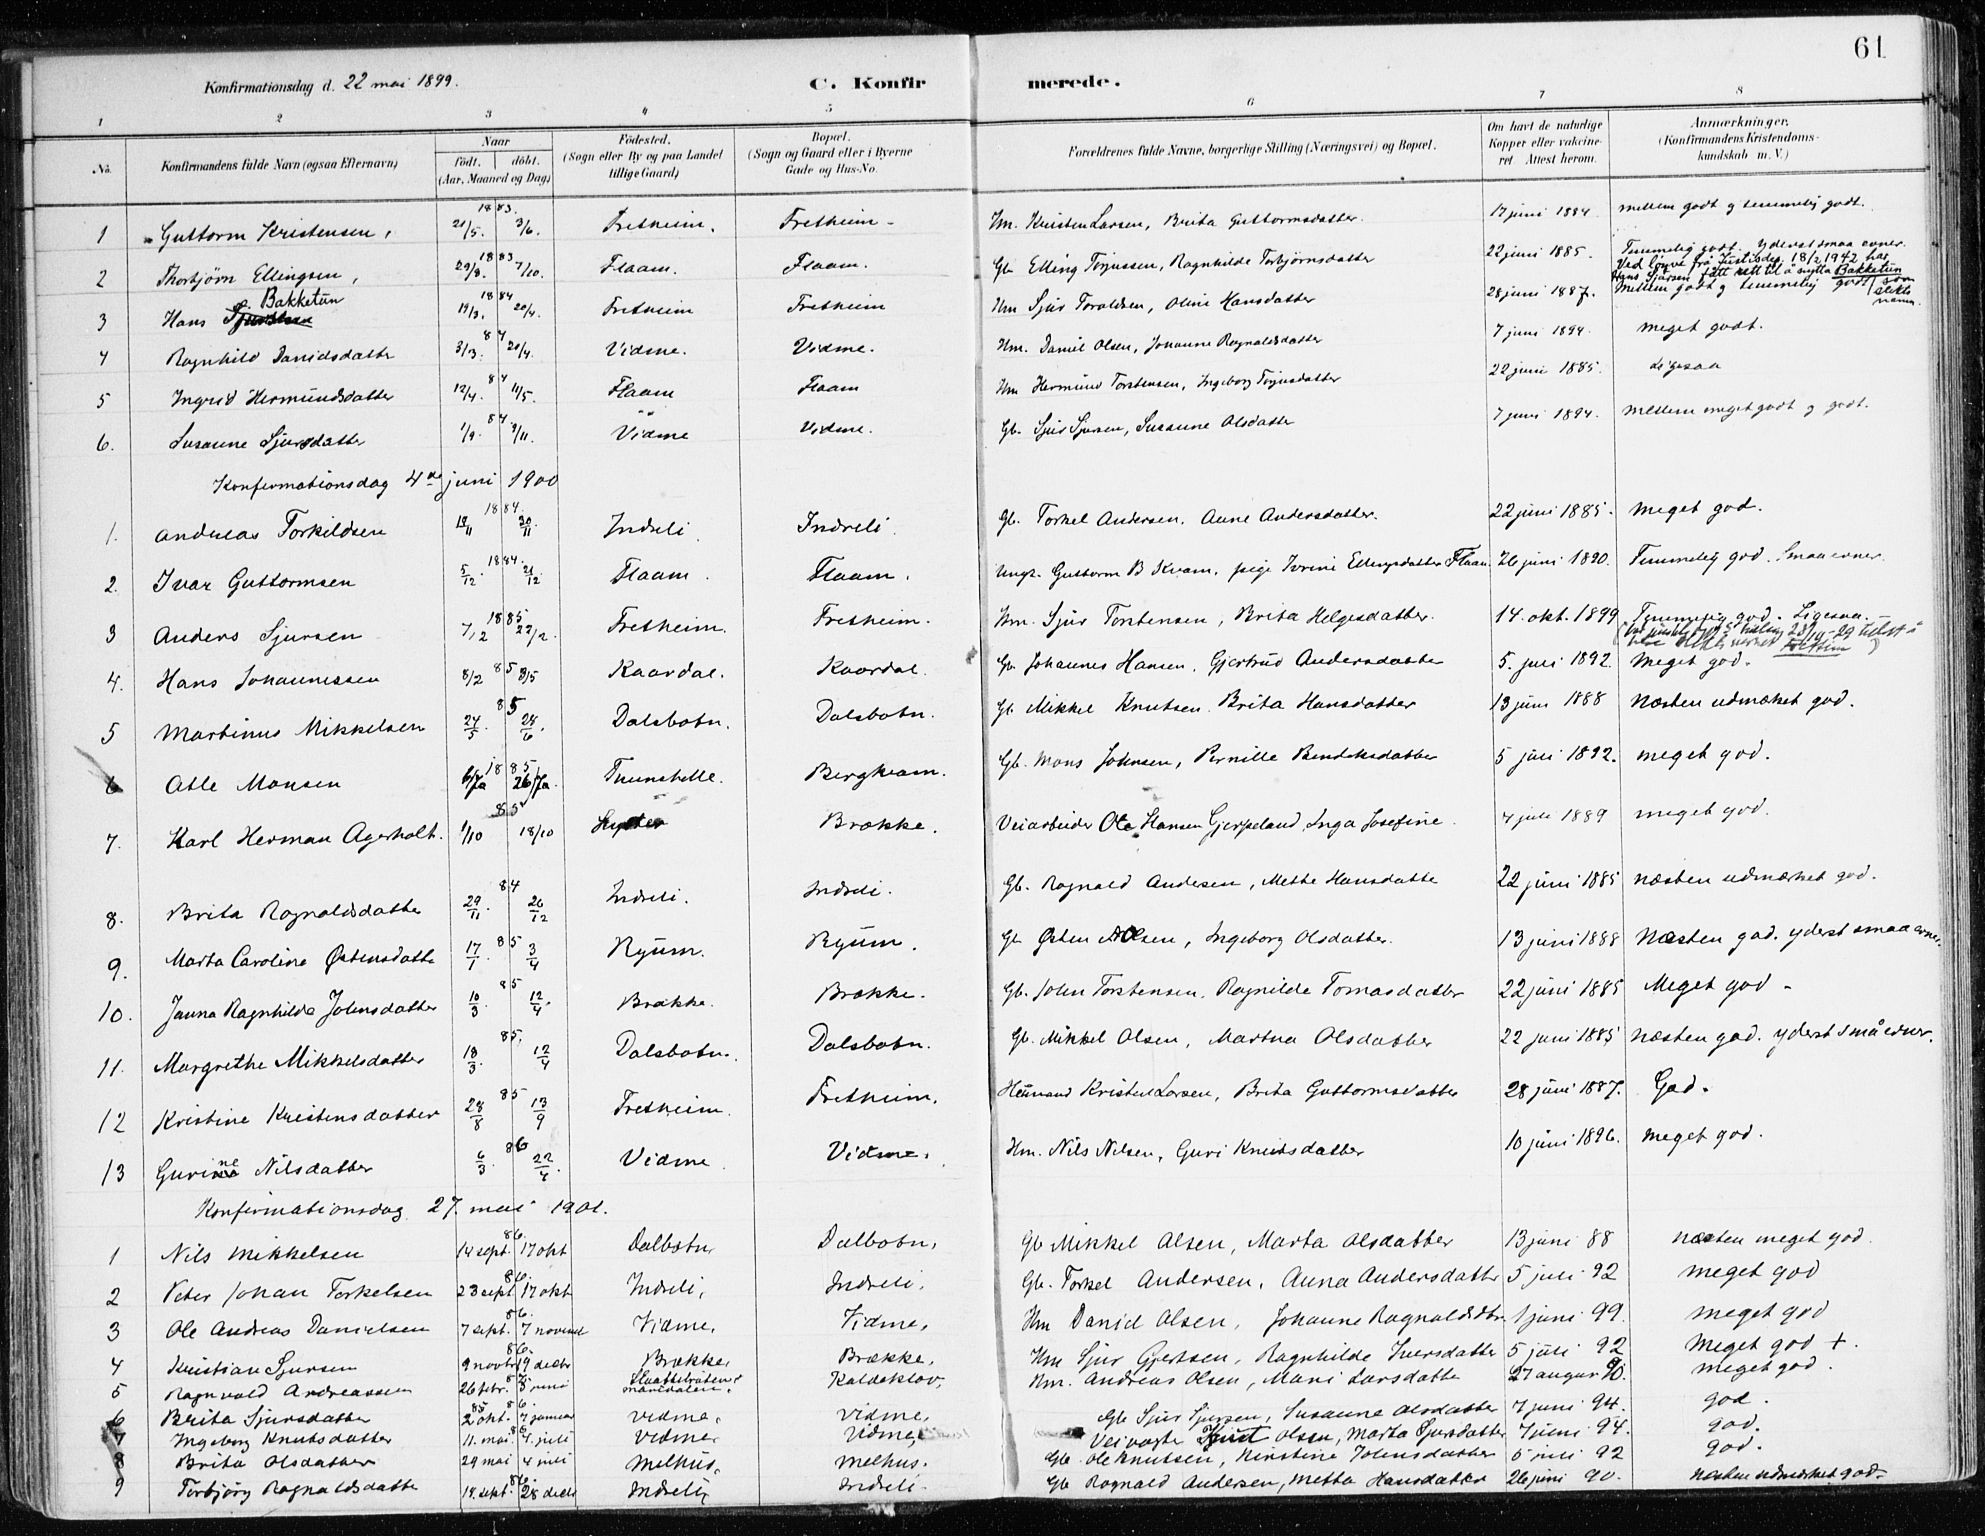 61
Konfirmationsdag d. 22 mai 1899.
C. Konfirmerede.
1 2 3 4 5 6 7 8
No. Konfirmandens fulde Navn (ogsaa Efternavn) Naar födt. döbt. (Aar, Maaned og Dag) Födested. (Sogn eller By og paa Landet tillige Gaard) Bopæl. (Sogn og Gaard eller i Byerne Gade og Hus-No. Forældrenes fulde Navne, borgerlige Stilling (Næringsvei) og Bopæl. Om havt de naturlige Kopper eller vakcineret Attest herom. Anmærkninger. (Konfirmandens Kristendomskundskab m. V.)
1 Guttorm Kristensen, 1883. 21/5. 3/6. Fretheim. Fretheim Hm. Kristen Larsen, Brita Guttormsdatter 17 juni 1884. mellem godt og temmelig godt.
2 Thorbjörn Ellingsen, 1883 29/9. 7/10. Flaam. Flaam. Gb. Elling Torjussen, Ragnhilde Torbjörnsdatter 22 juni 1885. Temmelig godt. yderst smaa evner.
Ved löyve frå Justisdep. 18/2 1942 har Hans Sjursen fått rett til å nytta Bakketun som slektsnamn.
3 Hans Sjursen Bakketun 1884 19/3. 20/4. Fretheim Fretheim Hm Sjur Toraldsen, Oline Hansdatter 28 juni 1887. Mellem godt og temmelig godt
4 Ragnhild Danidsdatter 84 3/3. 20/4. Vidme. Vidme. Hm. Daniel Olsen, Johanne Ragnaldsdatter 7 juni 1894. meget godt.
5 Ingrid Hermundsdatter 84 12/4. 11/5. Flaam Flaam Hm Hermund Torstensen, Ingeborg Torjusdatter 22 juni 1885. Ligesaa
6. Susanne Sjursdatter 84 1/9. 9/11. Vidme Vidme. Gb. Sjur Sjursen, Susanne Olsdatter 7 juni 1894. mellem meget godt og godt.
Konfirmationsdag 4de juni 1900
1. Andreas Torkildsen 1884. 30/11 Indreli Indreli Gb. Torkel Andersen. Anne Andersdatter. 22 juni 1885. Meget god.
2. Ivar Guttormsen 1884. 5/12. 21/12. Flaam. Flaam. Ungk. Guttorm B Kvam, pige Ivrine Ellingsdatter Flaam 26 juni 1890. Temmelig god. Smaa evner.
3 Anders Sjursen 1885 7/2 22/2. Fretheim. Fretheim. Hm. Sjur Torstensen, Brita Helgesdatter. 14. okt. 1899 Temmelig god. Ligesaa.
4. Hans Johannessen 85 8/2 8/5 Kaardal. Kaardal. Gb Johannes Hansen. Gjertrud Andersdatter 5. juli 1892. Meget god.
5 Martinus Mikkelsen 85 24/5. 28/6. Dalsbotn. Dalsbotn. Gb. Mikkel Knutsen. Brita Hansdatter 13 juni 1888 Næsten udmærket god.
6 Atle Monsen 1885. 6/7a 26/7a. Tuunshelle. Bergkvam. Gb. Mons Johnsen, Pernille Bendiksdatter 5 juli 1892. meget god.
7. Karl Herman Agerholt. 85 1/10 18/10 Brække. Veiarbeider Ole Hansen Gjerpeland, Inga Josefine 4 juli 1889 meget god.
8. Brita Ragnaldsdatter 84 29/11. 26/12 Indreli. Indreli. Gb. Ragnald Andersen, Mette Hansdatte 22 juni 1885 næsten udmærket god.
9. Marta Caroline Østensdatte 85 17/1. 3/4 Ryum. Ryum. Gb Østen Olsen, Ingeborg Olsdatter. 13 juni 1888 Næsten god. yderst smaa evner.
10. Janna Ragnhilde Johnsdatter 85 10/3 12/4. Brække. Brække. Gb. John Torstensen. Ragnilde Tomasdatter 22 juni 1885 Meget god.
11. Margrethe Mikkelsdatter 85. 18/3. 12/4 Dalsbotn. Dalsbotn. Gb. Mikkel Olsen, Martna Olsdatter 22 juni 1885 næsten god. yderst små evner.
12 Kristine Kristensdatter 85 28/8 13/9 Fretheim. Fretheim. Husmand Kristen Larsen, Brita Guttormsdatter 28 juni 1887. God.
13 Gurine Nilsdatter 86 6/3. 22/4. Vidme. Vidme. Hm. Nils Nilsen, Guri Knutsdatter 10 juni 1896. meget god.
Konfirmationsdag 27. mai 1901.
1 Nils Mikkelsen 86. 14 sept. 17 okt Dalbotn, Dalbotn, Gb Mikkel Olsen, Marta Olsdatter 13 juni 88 næsten meget god.
2 Peter Johan Torkelsen 86. 23 sept 17 okt Indreli, Indreli, Gb. Torkel Andersen, Anna Andersdatter 5 juli 92 meget god
3 Ole Andreas Danielsen 86. 7 sept. 7 novemb Vidme, Vidme, Hm Daniel Olsen, Johanne Ragnaldsdtr. 1 juni 99. meget god
4 Kristian Sjursen 86. 9 novbr 19 decbr Brække, Brække, Hm Sjur Gjertsen, Ragnhilde Iversdatter 5 juli 92 Meget god +.
5 Ragnvald Andreassen 26 febr. 5 juni maridalen. Kaldeklov, Hm. Andreas Olsen, Mari Larsdatte 27 august 90. meget god.
6 Brita Sjursdatter 85 86. 2 okt. 7 januar Vidme, Vidme, Gb Sjur Sjursen, Susanne Olsdatter 7 juni 94. god.
7 Ingeborg Knutsdatter 11. mai 4. juli Vidme, Vidme, Veivogte Knut Olsen, Marta Sjursdatter 7 juni 94. god.
8 Brita Olsdatter 29 mai 4 juli Melhus, Melhus. Gb. Ole Knutsen, Kirstine Johnsdatter 5 juli 92 god.
9 Torbjörg Ragnaldsdatte 86. 14. sept. 28 decbr Indreli, Indreli. Gb Ragnald Andersen, Metta Hansdatter 26 juni 90. næsten udmærket god.